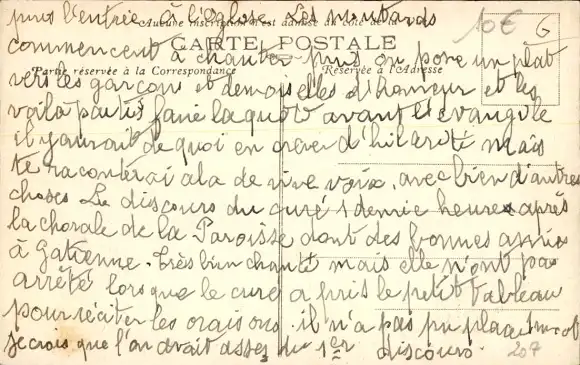 puis l'entrée à l'Eglise. Les moutards
Aucune inscription n'est admise du côté de
10€
G
commencent à chanter puis on pose un plat
CARTE POSTALE
Partie réservée à la Correspondance
Réservée à l'Adresse
vers les garçons et demoiselles d'Honneur et les
voila partis faire la quête avant l'évangile
il y aurait de quoi en crever d'hilarité mais
te raconterai cela de vive voix, avec bien d'autres
choses Le discours du curé 1 demie heure après
la chorale de la Paroisse dont des bonnes amies
à Gatienne. Très bien chanté mais elle n'ont pas
arrêté lorsque le curé a pris le petit tableau
pour réciter les oraisons. il n'a pas pu placer 1 mot
je crois que l'on avait assez du 1er discours.
207